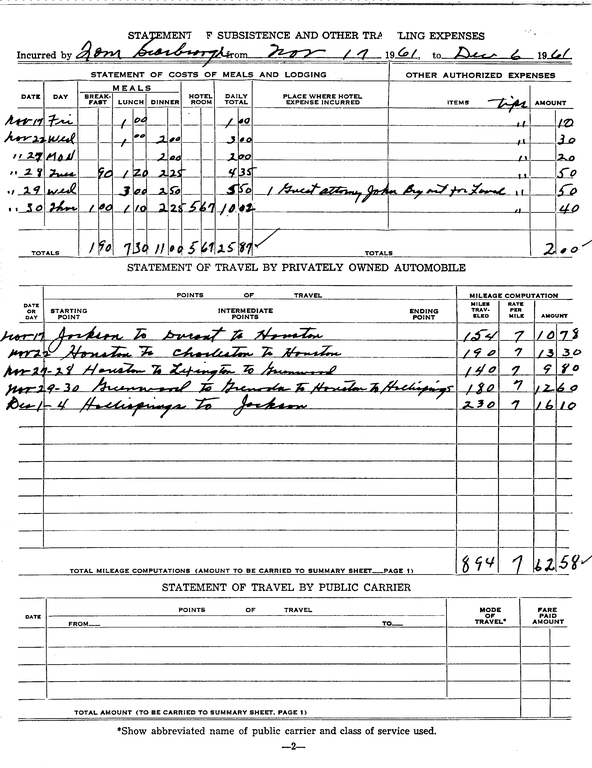 STATEMENT F SUBSISTENCE AND OTHER TRA LING EXPENSES
Incurred by Tom Scarbrough from Nov 17 1961, to Dec 6 1961
STATEMENT OF COSTS OF MEALS AND LODGING OTHER AUTHORIZED EXPENSES
MEALS
DATE DAY BREAK-FAST LUNCH DINNER HOTEL ROOM DAILY TOTAL PLACE WHERE HOTEL EXPENSE INCURRED ITEMS tips AMOUNT
Nov 17 Fri 1 00 1 00 " 10
Nov 22 Wed 1 00 2 00 3 00 " 30
" 27 Mon 2 00 2 00 " 20
" 28 Tues 90 1 20 2 25 4 35 " 50
" 29 Wed 3 00 2 50 5 50 1 Guest attorney John Bryant for Lunch " 50
" 30 Thur 1 00 1 10 2 25 5 67 10 02 " 40
TOTALS 1 90 7 30 11 00 5 67 25 87 ✓ TOTALS 2.00 ✓
STATEMENT OF TRAVEL BY PRIVATELY OWNED AUTOMOBILE
POINTS OF TRAVEL MILEAGE COMPUTATION
DATE OR DAY STARTING POINT INTERMEDIATE POINTS ENDING POINT MILES TRAV-ELED RATE PER MILE AMOUNT
Nov 17 Jackson to Durant to Houston 154 7 10 78
Nov 22 Houston to Charleston to Houston 190 7 13 30
Nov 27-28 Houston to Lexington to Greenwood 140 7 9 80
Nov 29-30 Greenwood to Grenada to Houston to Hollisprings 180 7 12 60
Dec 1-4 Hollisprings to Jackson 230 7 16 10
TOTAL MILEAGE COMPUTATIONS (AMOUNT TO BE CARRIED TO SUMMARY SHEET PAGE 1) 894 7 62 58 ✓
STATEMENT OF TRAVEL BY PUBLIC CARRIER
DATE POINTS OF TRAVEL MODE OF TRAVEL* FARE PAID AMOUNT
FROM TO
TOTAL AMOUNT (TO BE CARRIED TO SUMMARY SHEET, PAGE 1)
*Show abbreviated name of public carrier and class of service used.
—2—